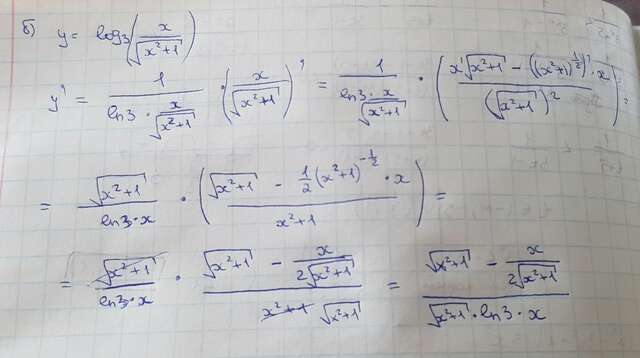 б) y = log₃(x/√(x²+1))
y' = 1/(ln3 · x/√(x²+1)) · (x/√(x²+1))' = 1/(ln3 · x/√(x²+1)) · ((x'√(x²+1) − ((x²+1)^(1/2))' · x)/(√(x²+1))²) =
= √(x²+1)/(ln3·x) · ((√(x²+1) − 1/2(x²+1)^(−1/2) · x)/(x²+1)) =
= √(x²+1)/(ln3·x) · (√(x²+1) − x/(2√(x²+1)))/(x²+1 √(x²+1)) = (√(x²+1) − x/(2√(x²+1)))/(√(x²+1) · ln3 · x)